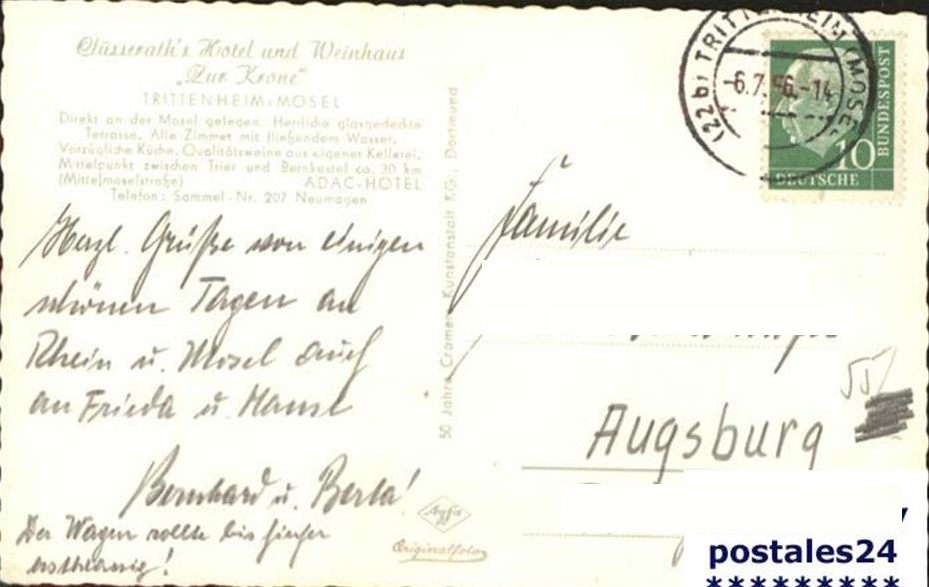 Clüsserath's Hotel und Weinhaus
„Zur Krone"
TRITTENHEIM-MOSEL
Direkt an der Mosel gelegen. Herrliche glasgedeckte
Terrasse. Alle Zimmer mit fließendem Wasser.
Vorzügliche Küche. Qualitätsweine aus eigener Kellerei.
Mittelpunkt zwischen Trier und Bernkastel ca. 30 km
(Mittelmoselstraße) ADAC-HOTEL
Telefon: Sammel-Nr. 207 Neumagen
Herzl. Grüße von einigen
schönen Tagen an
Rhein u. Mosel auch
an Frieda u. Hansl
Bernhard u. Berta!
Der Wagen rollte bis hierher
erstklassig!
50 Jahre Cramers Kunstanstalt KG., Dortmund
Agfa
Originalfoto
(22b) TRITTENHEIM (MOSEL)
-6.7.56.-14
10
DEUTSCHE
BUNDESPOST
Familie
Augsburg
postales24
*********